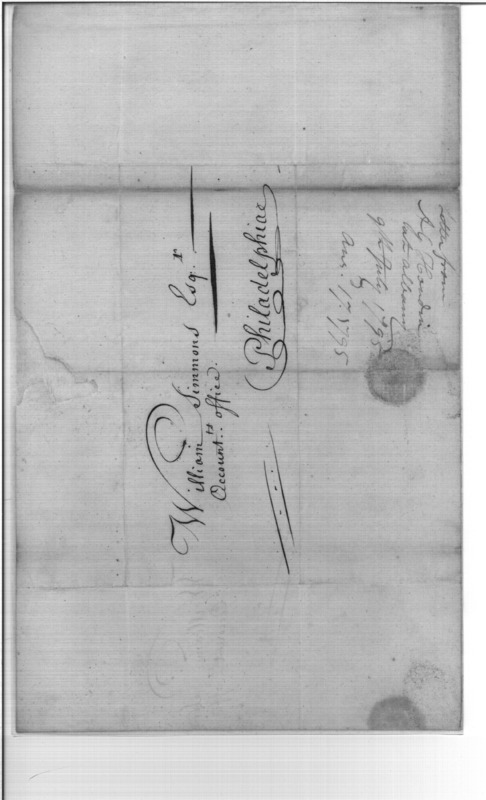 William Simmons Esqr
Account.ts office.
Philadelphiae
letter from
9th July 1795
Ans. 17 1795